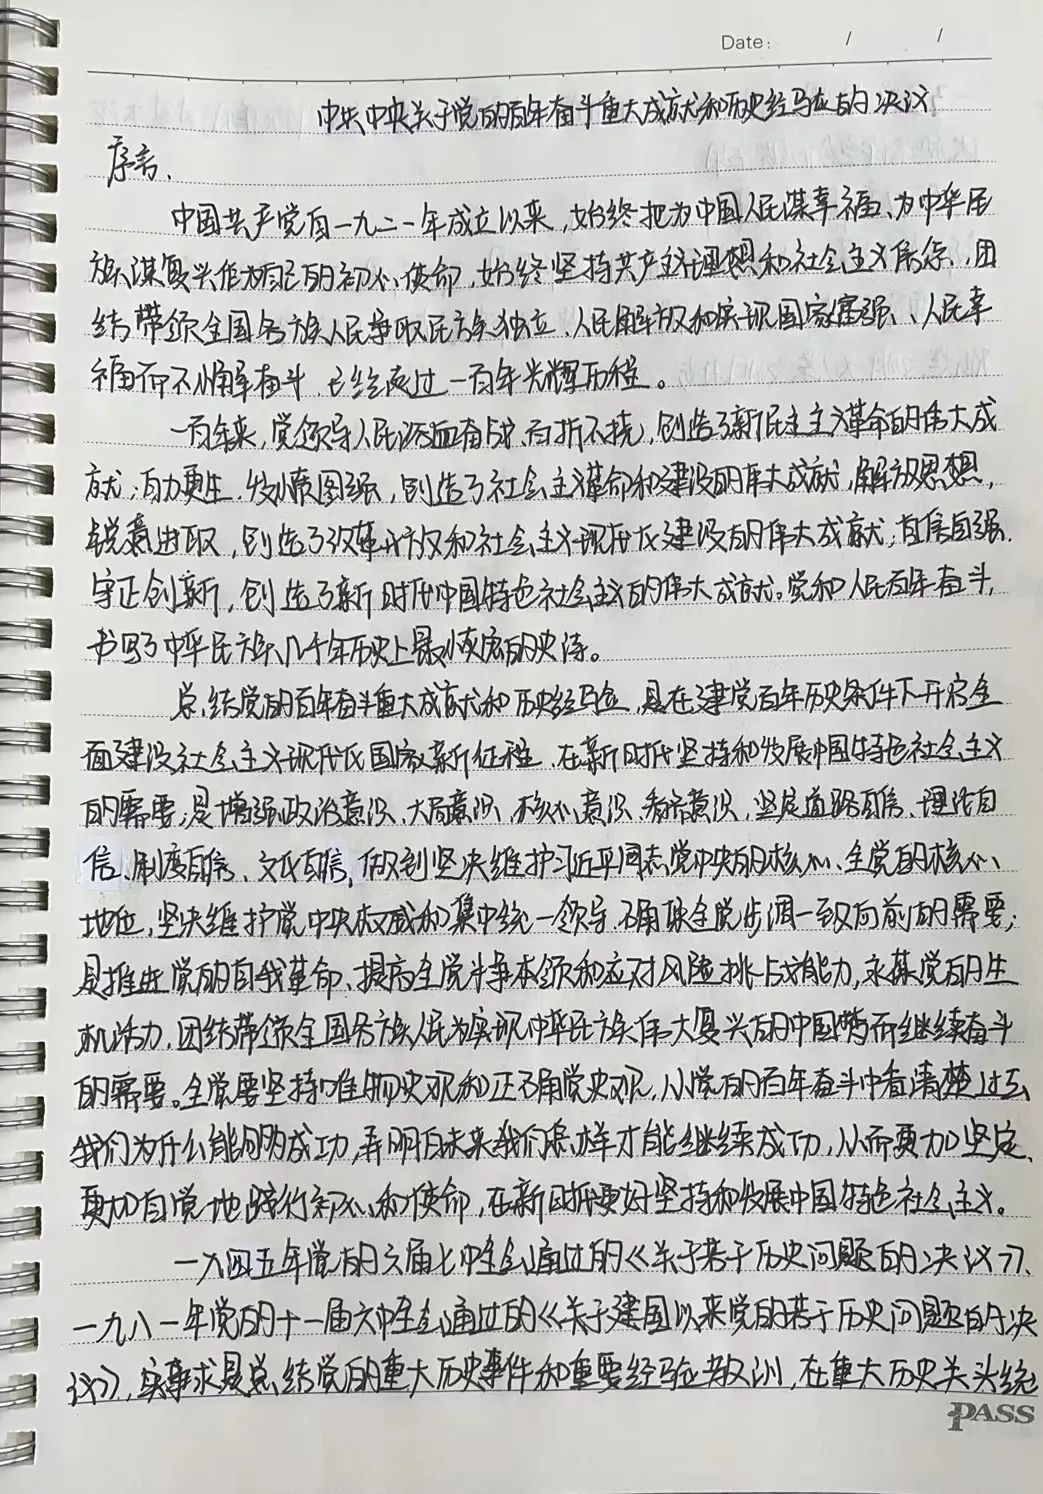 Date: / /
中共中央关于党的百年奋斗重大成就和历史经验的决议
序言、
中国共产党自一九二一年成立以来,始终把为中国人民谋幸福、为中华民
族谋复兴作为自己的初心使命,始终坚持共产主义理想和社会主义信念、团
结带领全国各族人民争取民族独立、人民解放和实现国家富强、人民幸
福而不懈奋斗、已经走过一百年光辉历程。
一百年来,党领导人民浴血奋战、百折不挠,创造了新民主主义革命的伟大成
就;自力更生、发愤图强,创造了社会主义革命和建设的伟大成就,解放思想,
锐意进取,创造了改革开放和社会主义现代化建设的伟大成就;自信自强、
守正创新,创造了新时代中国特色社会主义的伟大成就。党和人民百年奋斗,
书写了中华民族几千年历史上最恢宏的史诗。
总结党的百年奋斗重大成就和历史经验,是在建党百年历史条件下开启全
面建设社会主义现代化国家新征程、在新时代坚持和发展中国特色社会主义
的需要;是增强政治意识、大局意识、核心意识、看齐意识,坚定道路自信、理论自
信、制度自信、文化自信,做到坚决维护习近平同志党中央的核心、全党的核心、
地位,坚决维护党中央权威和集中统一领导,确保全党步调一致向前的需要;
是推进党的自我革命、提高全党斗争本领和应对风险挑战能力,永葆党的生
机活力,团结带领全国各族人民为实现中华民族伟大复兴的中国梦而继续奋斗
的需要。全党要坚持唯物史观和正确党史观,从党的百年奋斗中看清楚过去
我们为什么能够成功,弄明白未来我们怎样才能继续成功,从而更加坚定、
更加自觉地践行初心和使命,在新时代更好坚持和发展中国特色社会主义。
一九四五年党的六届七中全会通过的《关于若干历史问题的决议》、
一九八一年党的十一届六中全会通过的《关于建国以来党的若干历史问题的决
议》,实事求是总结党的重大历史事件和重要经验教训,在重大历史关头统
PASS